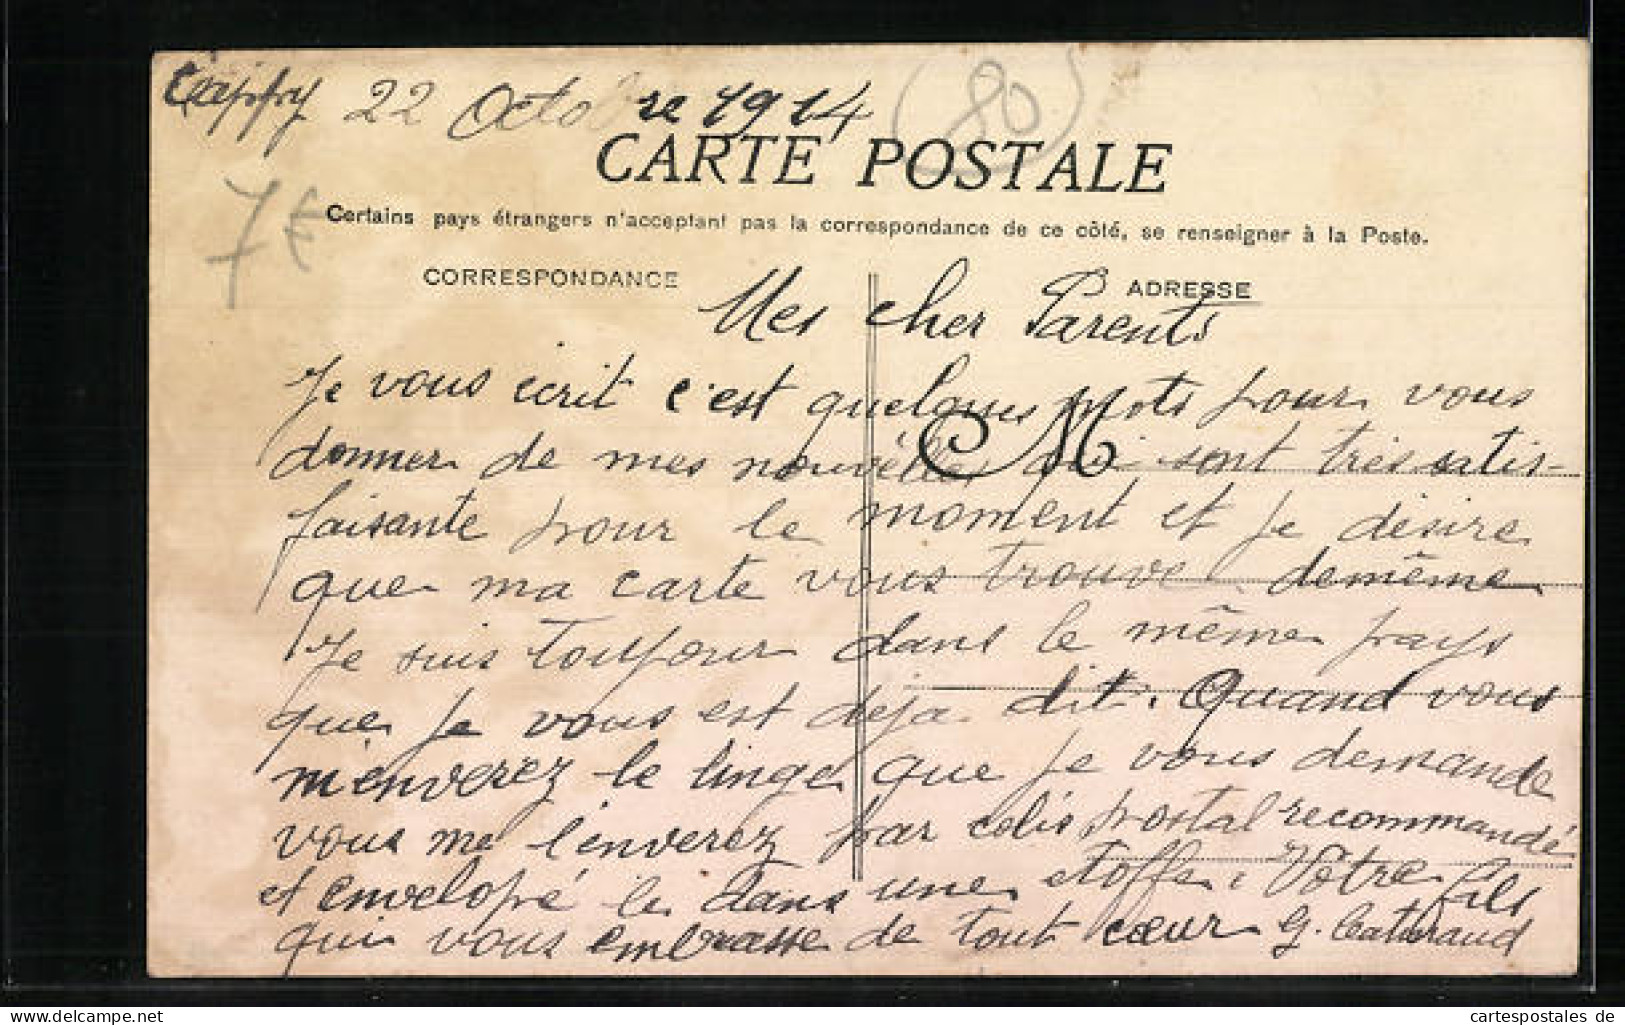 Cappy 22 Octobre 1914
(80)
CARTE POSTALE
7€
Certains pays étrangers n'acceptant pas la correspondance de ce côté, se renseigner à la Poste.
CORRESPONDANCE
ADRESSE
Mes cher Parents
CM
Je vous écrit c'est quelques mots pour vous
donner de mes nouvelles qui sont très satis-
faisante pour le moment et je désire
que ma carte vous trouve demême
Je suis toujour dans le même pays
que je vous est deja dit. Quand vous
m'enverez le linge que je vous demande
vous me l'enverez par colis postal recommandé
et envelopé le dans une etoffe. Votre fils
qui vous embrasse de tout cœur G.
www.delcampe.net
cartespostales de